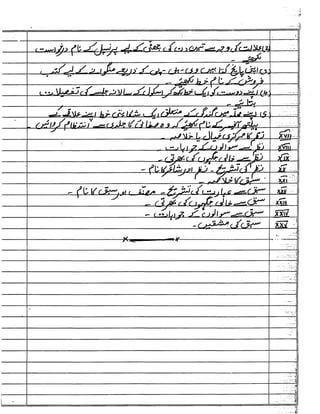 علالت کی وجہ سے تین دن کی چھٹی کے لیے پرنسپل کے نام درخواست
لکھیے۔
اپنی پانچ کتابیں وی۔پی۔پی کے ذریعے منگوانے کے لیے کتب
فروش کے نام خط لکھیے۔
اپنے دوست کو ایک خط لکھ کر اسکول کے سالانہ جلسے کی تفصیلات
بتائیے۔
(ی) اپنے محلہ میں گندگی کے متعلق ایک شکایتی خط اپنے علاقے کے
ہیلتھ آفیسر کے نام لکھیے کہ وہ صفائی کا جلدی سے انتظام کروائیں۔
XVII نظم کا مرکزی خیال یا خلاصہ۔
XVIII نظم سے سوالوں کے جوابات۔
XIX نظم سے خالی جگہوں کی بھرتی۔
XX نظم کی تشریح۔ نظم اور شاعر کا نام۔
XXI سبق کا خلاصہ۔
XXII سبق سے عبارت کی تشریح۔ مصنف اور سبق کا نام۔
XXIII سبق سے خالی جگہوں کی بھرتی۔
XXIV سبق سے سوالوں کے جوابات۔
XXV سبق کی مشقیں۔